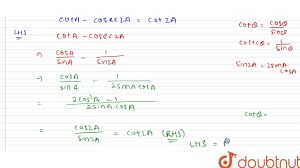 cotA - cosec2A = cot2A
LHS
cotA - cosec2A
⇒ cosA/sinA - 1/sin2A
⇒ cosA/sinA - 1/2sinA.cosA
= 2cos²A - 1/2sinA.cosA
= cos2A/sin2A = cot2A (RHS)
LHS = R
cotθ = cosθ/sinθ
cosecθ = 1/sinθ
sin2A = 2sinA.cosA
cotθ =
doubtnut